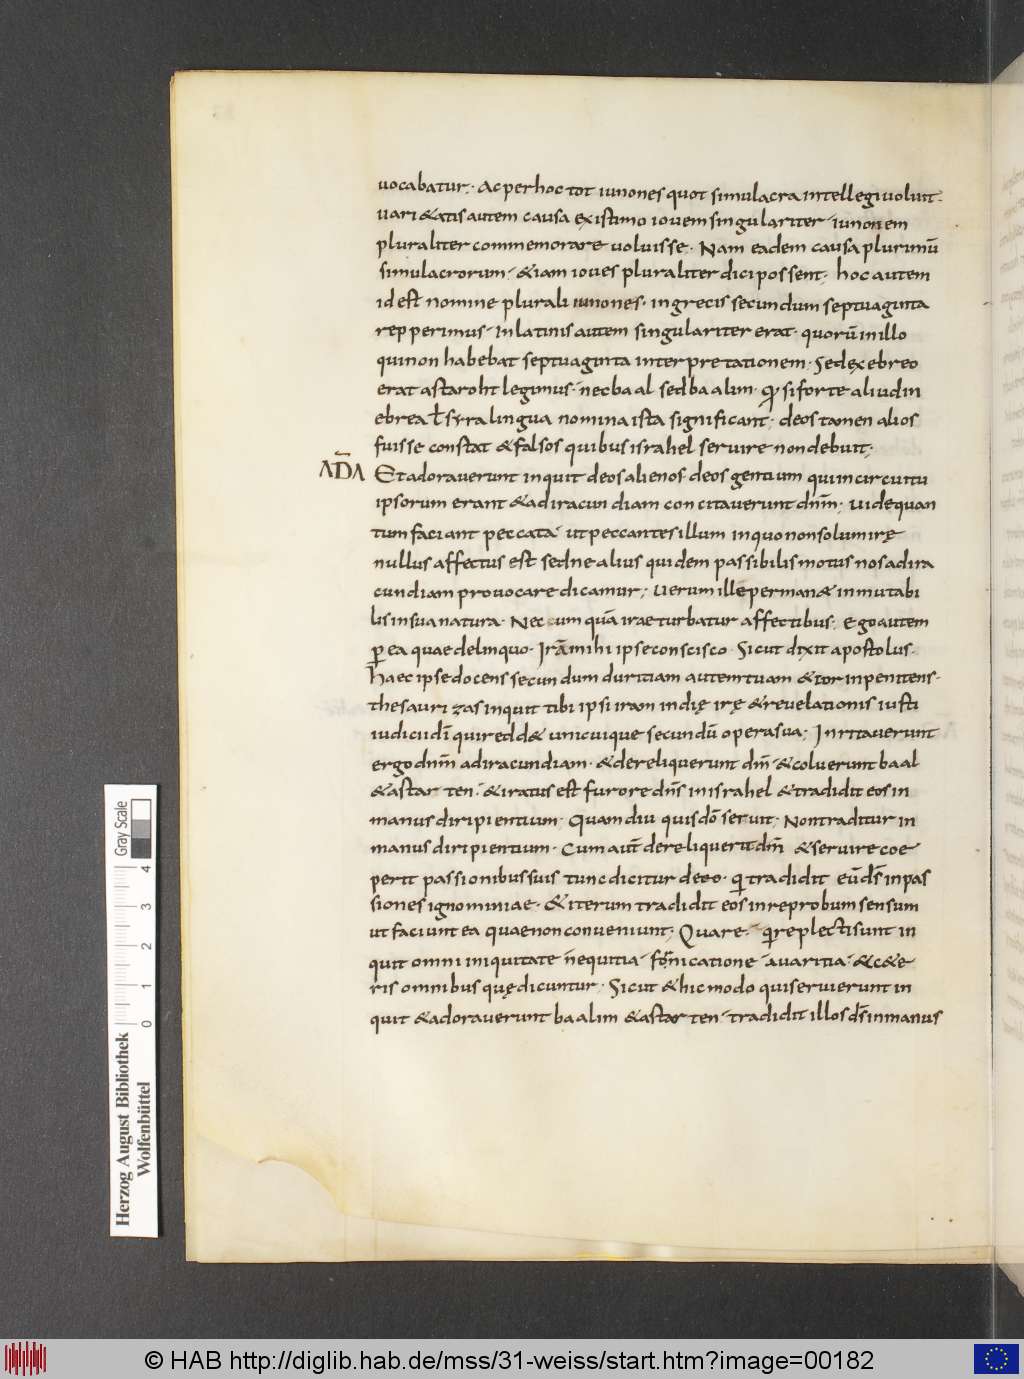 uocabatur;· Ac per hoc tot iunones quot simulacra intellegi uoluit·
uari&atis autem causa existimo iouem singulariter· iunonem
pluraliter commemorare uoluisse· Nam eadem causa plurimū
simulacrorum· &iam ioues pluraliter dici possent; hoc autem
id est nomine plurali iunones· in grecis secundum septuaginta
repperimus· In latinis autem singulariter erat· quorū in illo
qui non habebat septuaginta interpretationem· Sed ex ebreo
erat astaroht legimus· nec baal sed baalim· si forte aliud in
ebrea ł syra lingua nomina ista significant; deos tamen alios
fuisse constat & falsos quibus israhel seruire non debuit;
AD̄A Et adorauerunt inquit deos alienos· deos gentium qui in circuitu
ipsorum erant & ad iracundiam concitauerunt dnm̄; Uide quan
tum faciant peccata· ut peccantes illum in quo non solum irę
nullus affectus est sed ne alius quidem passibilis motus nos ad ira
cundiam prouocare dicamur; Uerum ille perman& inmutabi
lis in sua natura· Nec um quā irae turbatur affectibus; Ego autem
ꝑ ea quae delinquo· Irā mihi ipse conscisco· Sicut dixit apostolus·
haec ipse docens secundum duritiam autem tuam & cor inpenitens·
thesaurizas inquit tibi ipsi iram in dię irę & reuelationis iusti
iudicii dī qui redd& unicuique secundū opera sua; Inritauerunt
ergo dnm̄ ad iracundiam· & dereliquerunt dm̄· & coluerunt baal
& astar ten· & iratus est furore dn̄s in israhel & tradidit eos in
manus diripientium· Quamdiu quis dō seruit; Non traditur in
manus diripientium· Cum aut̄ dereliquerit dm̄ & seruire coe
perit passionibus suis tunc dicitur de eo· tradidit eū ds̄ in pas
siones ignominiae· & iterum tradidit eos in reprobum sensum
ut faciunt ea quae non conueniunt; Quare· replecti sunt in
quit omni iniquitate nequitia· fornicatione· auaritia· & c&e
ris omnibus quę dicuntur· Sicut & hic modo qui seruierunt in
quit & adorauerunt baalim & astar ten· tradidit illos ds̄ in manus
Gray Scale
4 3 2 1 0
Herzog August Bibliothek
Wolfenbüttel
© HAB http://diglib.hab.de/mss/31-weiss/start.htm?image=00182